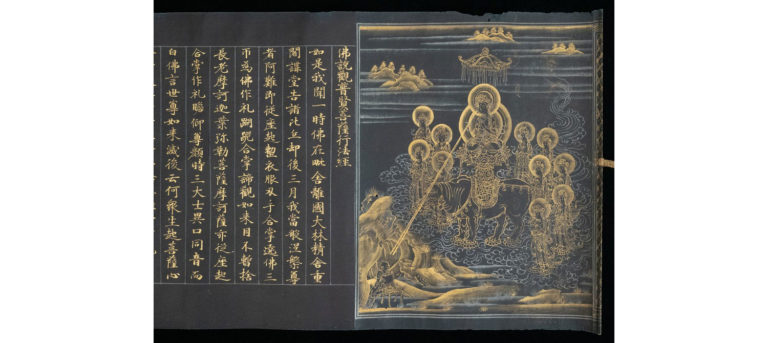 佛說觀普賢菩薩行法經
如是我聞一時佛在毗舍離國大林精舍重
閣講堂告諸比丘却後三月我當般涅槃尊
者阿難即從座起整衣服叉手合掌遶佛三
帀為佛作礼䠒跪合掌諦觀如來目不暫捨
長老摩訶迦葉弥勒菩薩摩訶薩亦從座起
合掌作礼瞻仰尊顏時三大士異口同音而
白佛言世尊如來滅後云何衆生起菩薩心